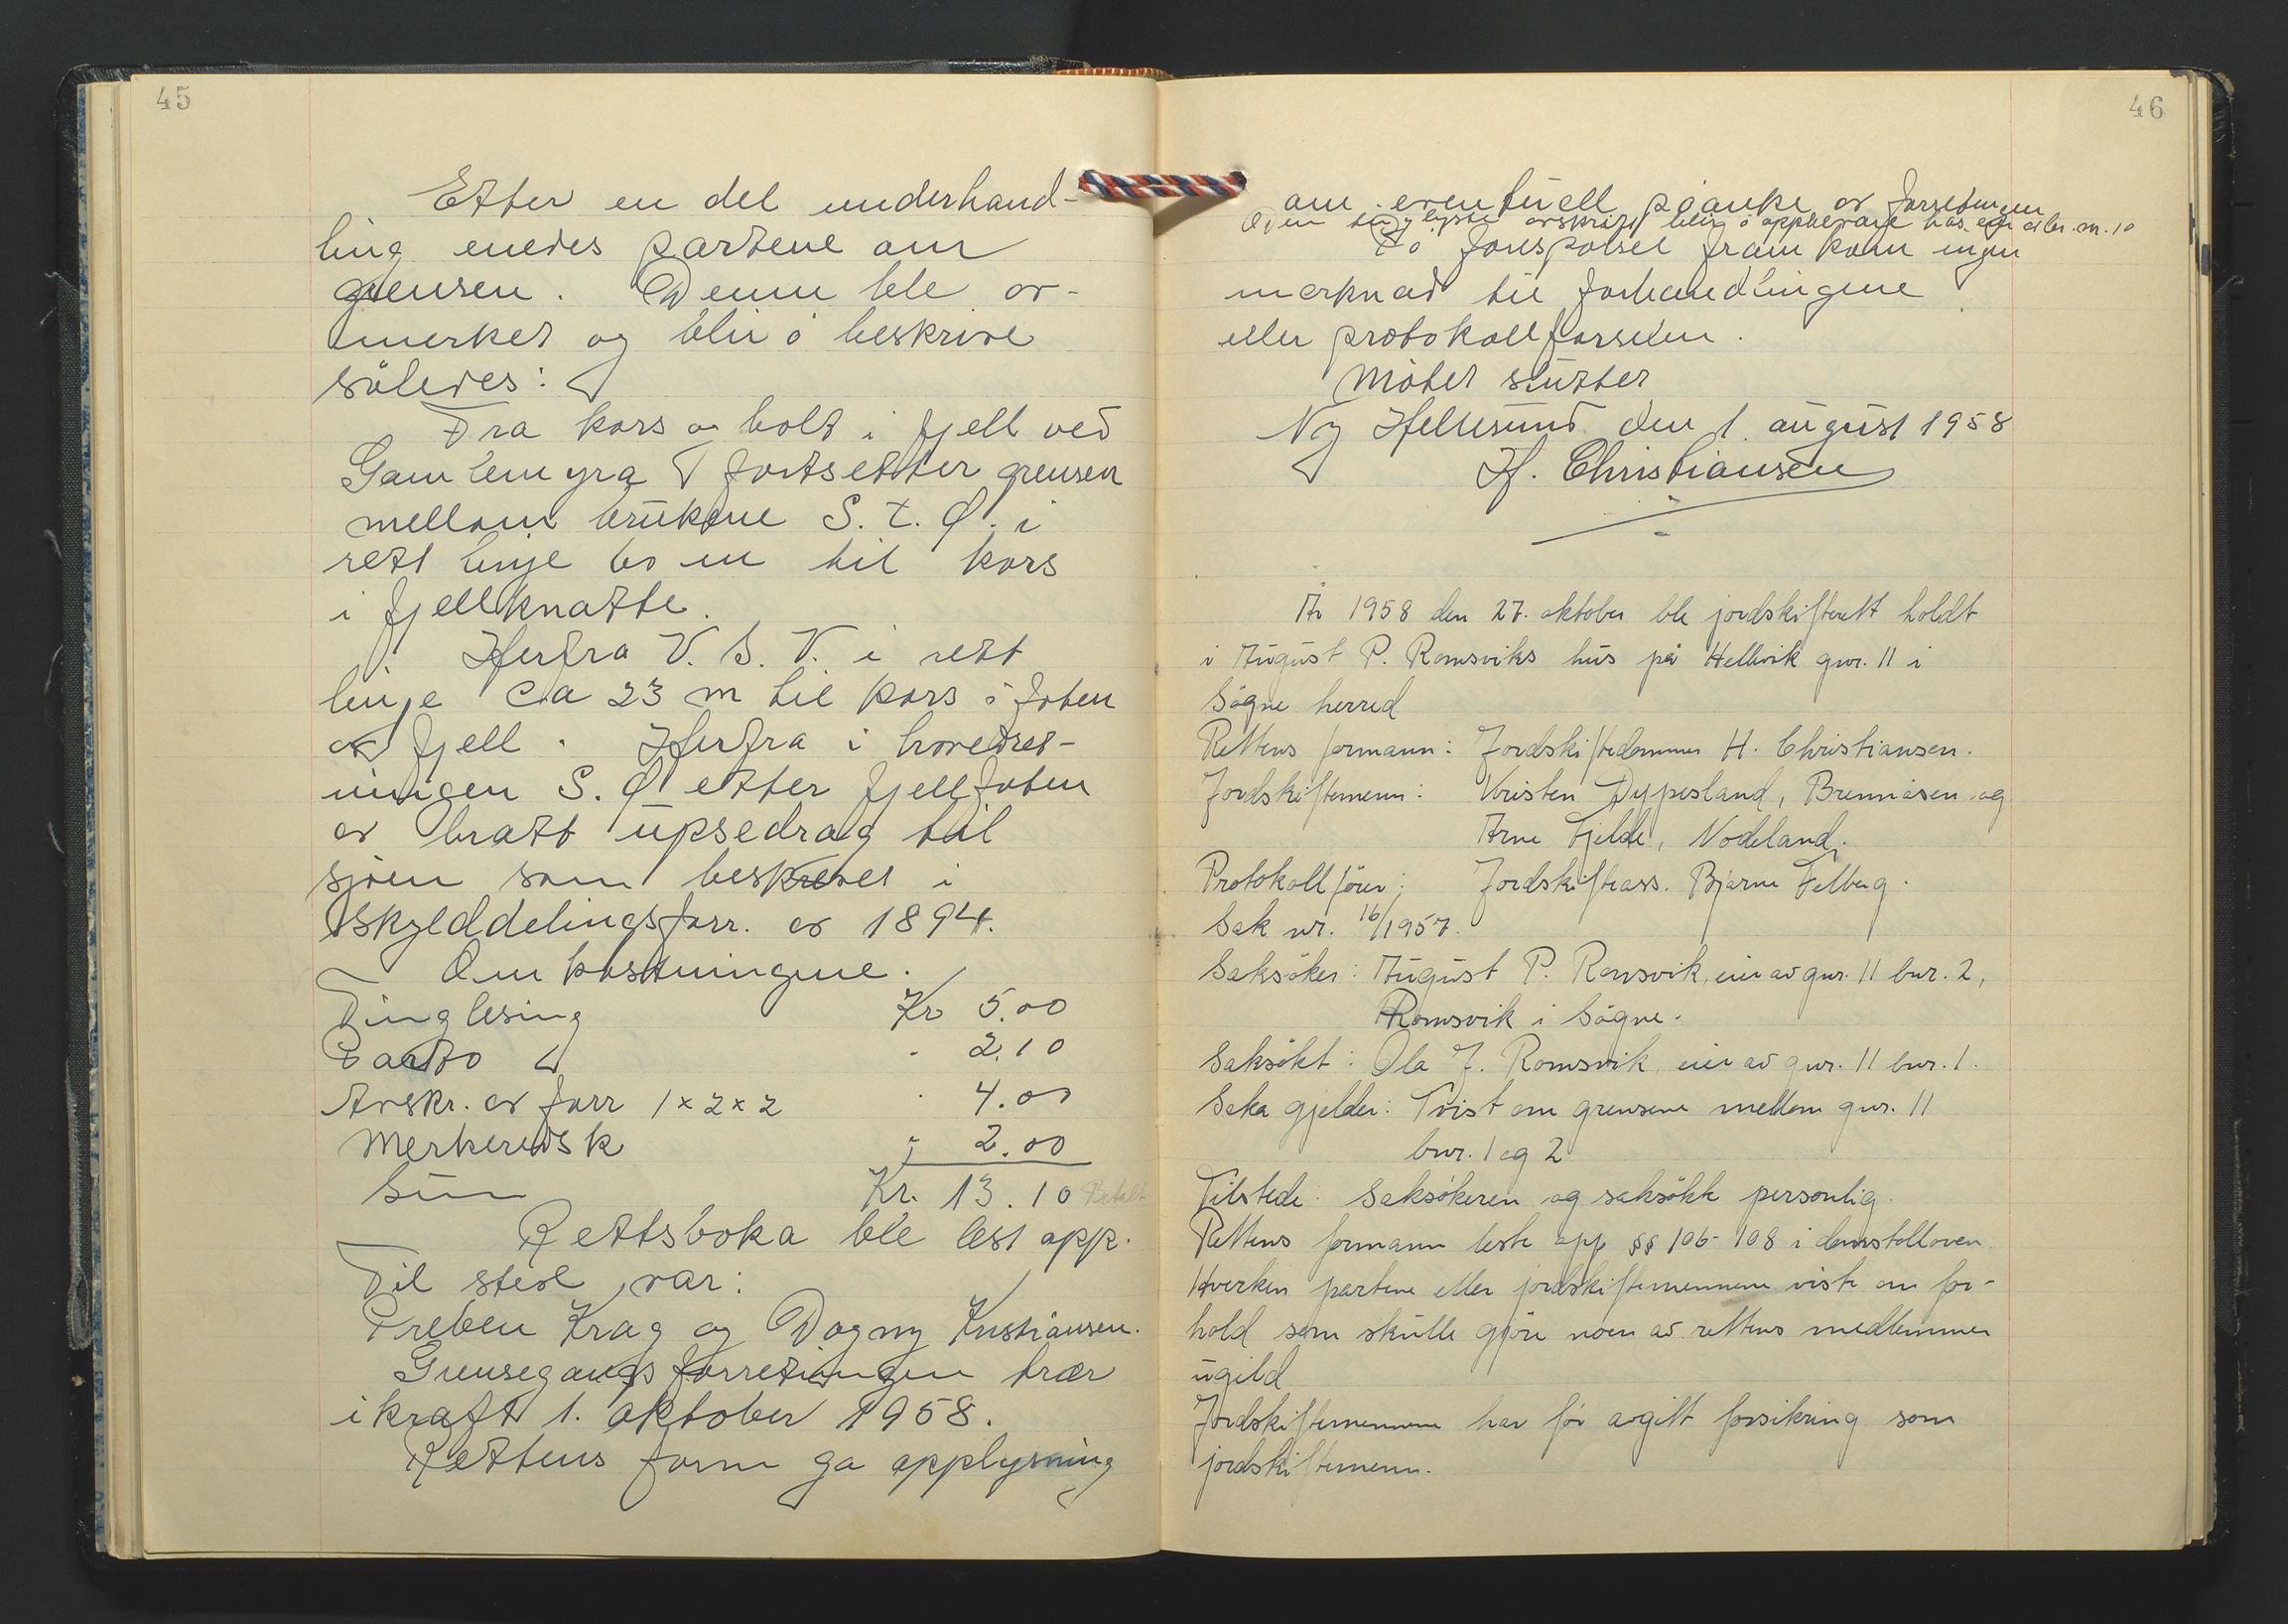 45
Etter en del underhand-
ling enedes partene om
grensen. Denne ble av-
merket og blir å beskrive
således:
Fra kors og bolt i fjell ved
Gamlemyra fortsetter grensen
mellom brukene S. t. Ø. i
rett linje 60 m til kors
i fjellknatte.
Herfra V. S. V. i rett
linje ca 23 m til kors i foten
av fjell. Herfra i hovedret-
ningen S. Ø etter fjellfoten
av bratt upsedrag til
sjøen som beskrevet i
skylddelingsforr. av 1894.
Omkostningene.
Tinglesing Kr 5.00
Porto - 2.10
Avskr. av forr 1 x 2 x 2 - 4.00
Merkeredsk - 2.00
Sum Kr. 13.10 Betalt
Rettsboka ble lest opp.
Til stede var:
Preben Krag og Dagny Kristiansen.
Grensegangsforretningen trær
i kraft 1. oktober 1958.
Rettens form ga opplysning
46
om eventuell påanke av forretningen
Den tinglyste avskrift blir å oppbevare hos eier av br. nr. 10
På forespørsel framkom ingen
merknad til forhandlingene
eller protokollførselen.
Møtet sluttet
Ny Hellesund den 1. august 1958
H. Christiansen
År 1958 den 27. oktober ble jordskifterett holdt
i August P. Romsviks hus på Hellvik gnr. 11 i
Søgne herred
Rettens formann: Jordskiftedommer H. Christiansen.
Jordskiftemenn: Kristen Dypesland, Brennåsen og
Arne Fjelde, Nodeland.
Protokollfører: Jordskifteass. Bjarne Felberg.
Sak nr. 16/1957.
Saksøker: August P. Romsvik, eier av gnr. 11 bnr. 2,
Romsvik i Søgne.
Saksøkt: Ola J. Romsvik, eier av gnr. 11 bnr. 1.
Saka gjelder: Tvist om grensene mellom gnr. 11
bnr. 1 og 2
Tilstede: Saksøkeren og saksøkte personlig.
Rettens formann leste opp §§ 106-108 i domstolloven.
Hverken partene eller jordskiftemennene viste om for-
hold som skulle gjøre noen av rettens medlemmer
ugild
Jordskiftemennene har før avgitt forsikring som
jordskiftemenn.